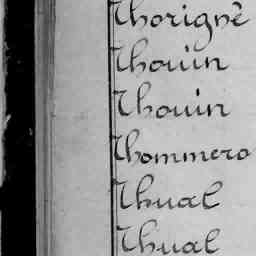 Thorigné
Thouin
Thouin
Thommero
Thual
Thual